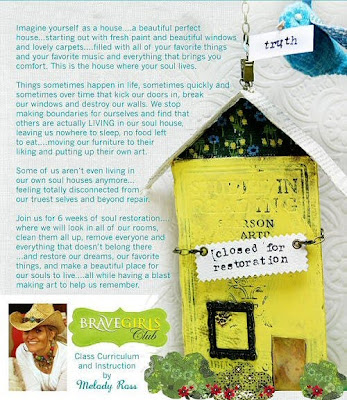 Imagine yourself as a house....a beautiful perfect
house...starting out with fresh paint and beautiful windows
and lovely carpets....filled with all of your favorite things
and your favorite music and everything that brings you
comfort. This is the house where your soul lives.
Things sometimes happen in life, sometimes quickly and
sometimes over time that kick our doors in, break
our windows and destroy our walls. We stop
making boundaries for ourselves and find that
others are actually LIVING in our soul house,
leaving us nowhere to sleep, no food left
to eat....moving our furniture to their
liking and putting up their own art.
Some of us aren't even living in
our own soul houses anymore...
feeling totally disconnected from
our truest selves and beyond repair.
Join us for 6 weeks of soul restoration....
where we will look in all of our rooms,
clean them all up, remove everyone and
everything that doesn't belong there
...and restore our dreams, our favorite
things, and make a beautiful place for
our souls to live....all while having a blast
making art to help us remember.
truth
[closed for
restoration
BRAVEGIRLS
Club
Class Curriculum
and Instruction
by
Melody Ross